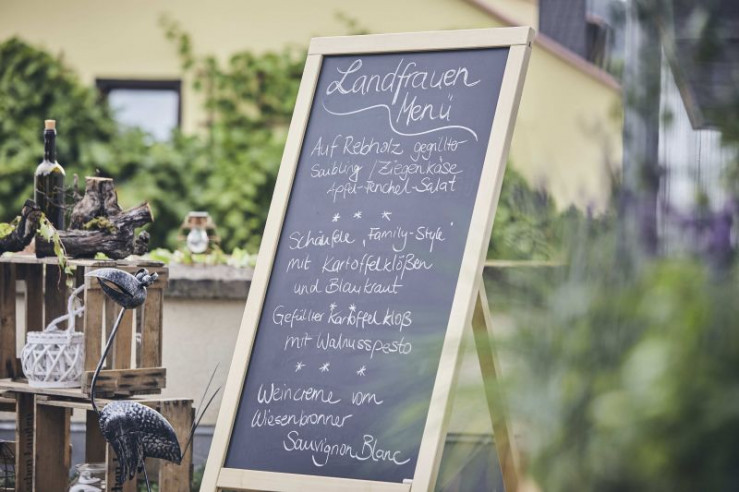 Landfrauen
Menü
Auf Rebholz gegrillter
Saibling / Ziegenkäse
Apfel-Fenchel-Salat
* * *
Schäufele „Family-Style"
mit Kartoffelklößen
und Blaukraut
* * *
Gefüllter Kartoffelkloß
mit Walnusspesto
* * *
Weincreme vom
Wiesenbronner
Sauvignon Blanc